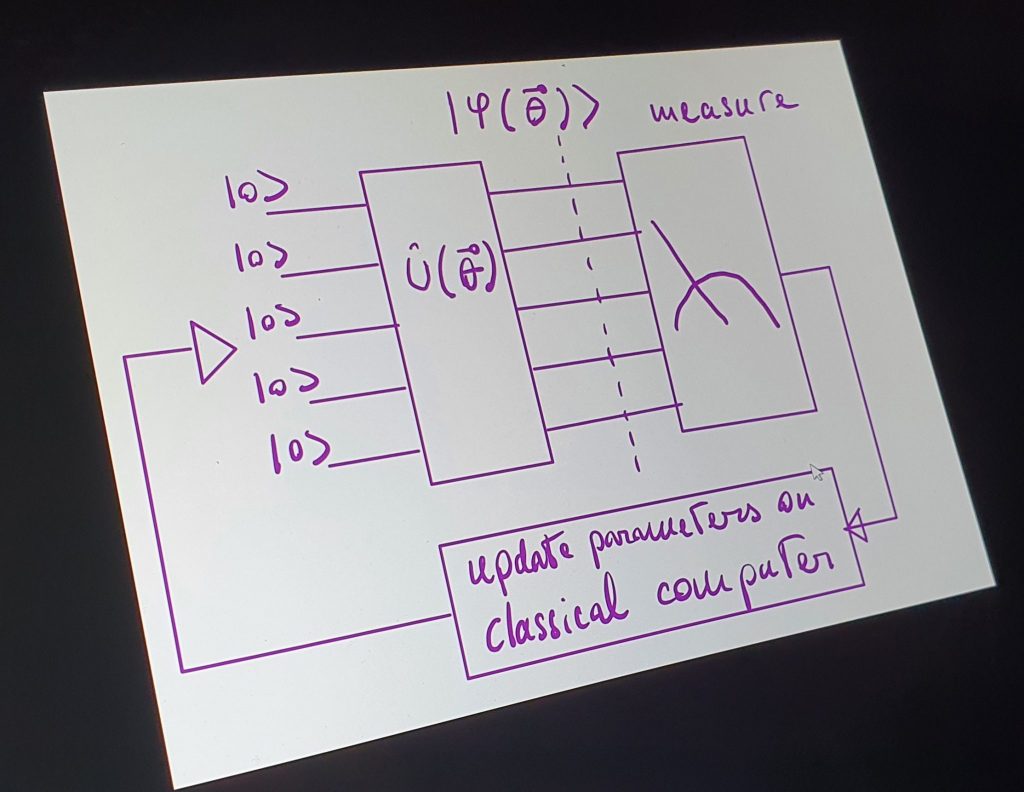 |φ(θ⃗)⟩
measure
|0⟩
|0⟩
|0⟩
|0⟩
|0⟩
Û(θ⃗)
update parameters on
classical computer